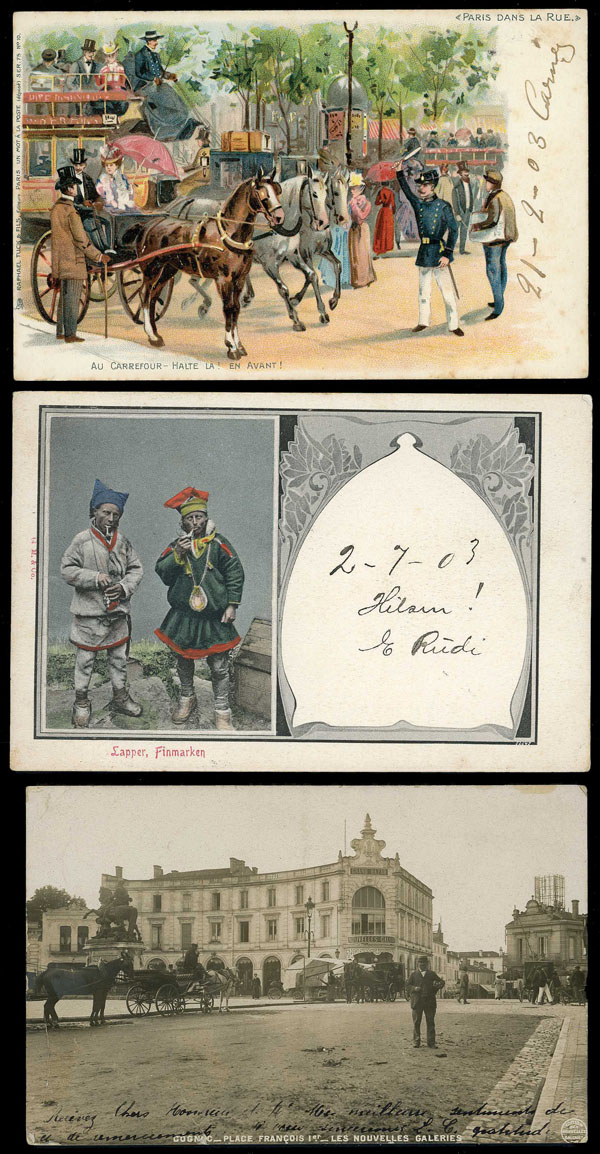 «PARIS DANS LA RUE.»
RAPHAEL TUCK & FILS, PARIS. UN MOT À LA POSTE (déposé) SER. 75 Nº 10.
21-9-03
AU CARREFOUR - HALTE LA! EN AVANT!
2-7-03
Hilsen!
E Rüdi
Lapper, Finmarken
Recevez Chers Monsieur & Me Mes meilleurs sentiments de
et de remerciements
gratitude.
COGNAC — PLACE FRANÇOIS 1ER — LES NOUVELLES GALERIES